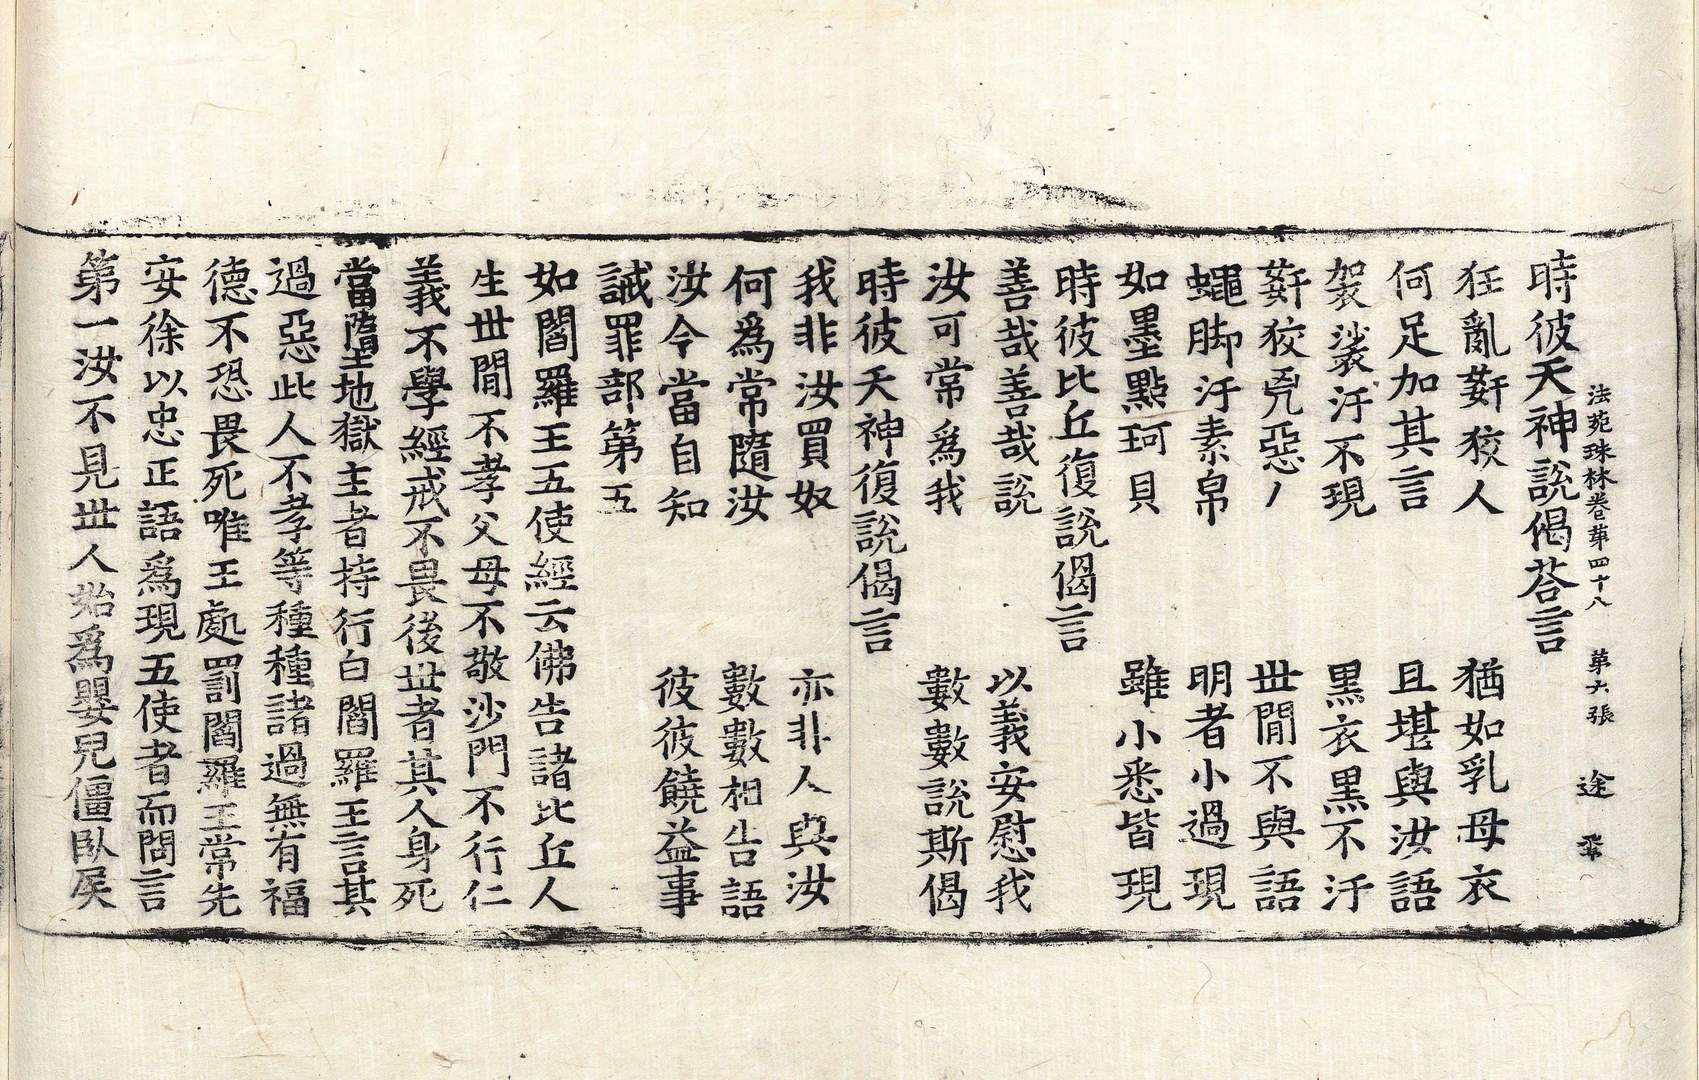 法苑珠林卷第四十八 第六張 途
時彼天神說偈荅言
狂亂姧狡人 猶如乳母衣
何足加其言 且堪與汝語
袈裟汙不現 黑衣黑不汙
姧狡兇惡人 世閒不與語
蠅脚汙素帛 明者小過現
如墨點珂貝 雖小悉皆現
時彼比丘復說偈言
善哉善哉說 以義安慰我
汝可常爲我 數數說斯偈
時彼天神復說偈言
我非汝買奴 亦非人與汝
何爲常隨汝 數數相告語
汝今當自知 彼彼饒益事
誡罪部第五
如閻羅王五使經云佛告諸比丘人
生世閒不孝父母不敬沙門不行仁
義不學經戒不畏後世者其人身死
當墮地獄主者持行白閻羅王言其
過惡此人不孝等種種諸過無有福
德不恐畏死唯王處罰閻羅王常先
安徐以忠正語爲現五使者而問言
第一汝不見世人始爲嬰兒僵臥屎